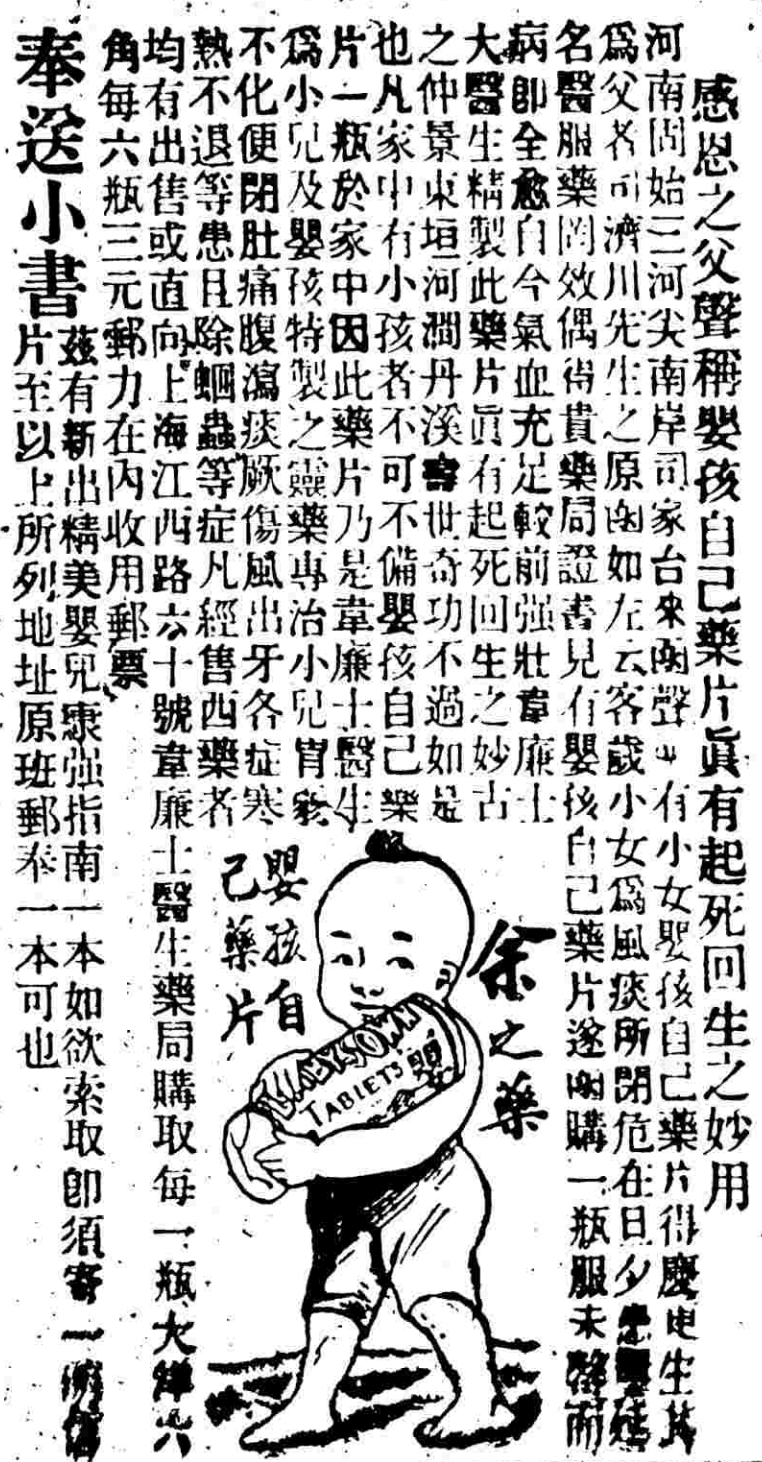 感恩之父聲稱嬰孩自己藥片眞有起死回生之妙用
河南固始三河尖南岸司家台來函聲 有小女嬰孩自己藥片得慶 生其
爲父者司濟川先生之原函如左云客歲小女爲風痰所閉危在旦夕 延
名醫服藥罔效偶得貴藥局證書見有嬰孩自己藥片遂函購一瓶服未 而
病卽全愈自今氣血充足較前强壯韋廉士
大醫生精製此藥片眞有起死回生之妙古
之仲景東垣河澗丹溪壽世奇功不過如是
也凡家中有小孩者不可不備嬰孩自己藥
片一瓶於家中因此藥片乃是韋廉士醫生
爲小兒及嬰孩特製之靈藥專治小兒胃
不化便閉肚痛腹瀉痰厥傷風出牙各症寒
熱不退等患且除蛔蟲等症凡經售西藥者
均有出售或直向上海江西路六十號韋廉士醫生藥局購取每一瓶大洋六
角每六瓶三元郵力在內收用郵票
奉送小書
茲有新出精美嬰兒康强指南一本如欲索取卽須寄一
片至以上所列地址原班郵奉一本可也
余之藥
嬰孩自
己藥片
BABY'S OWN
TABLETS